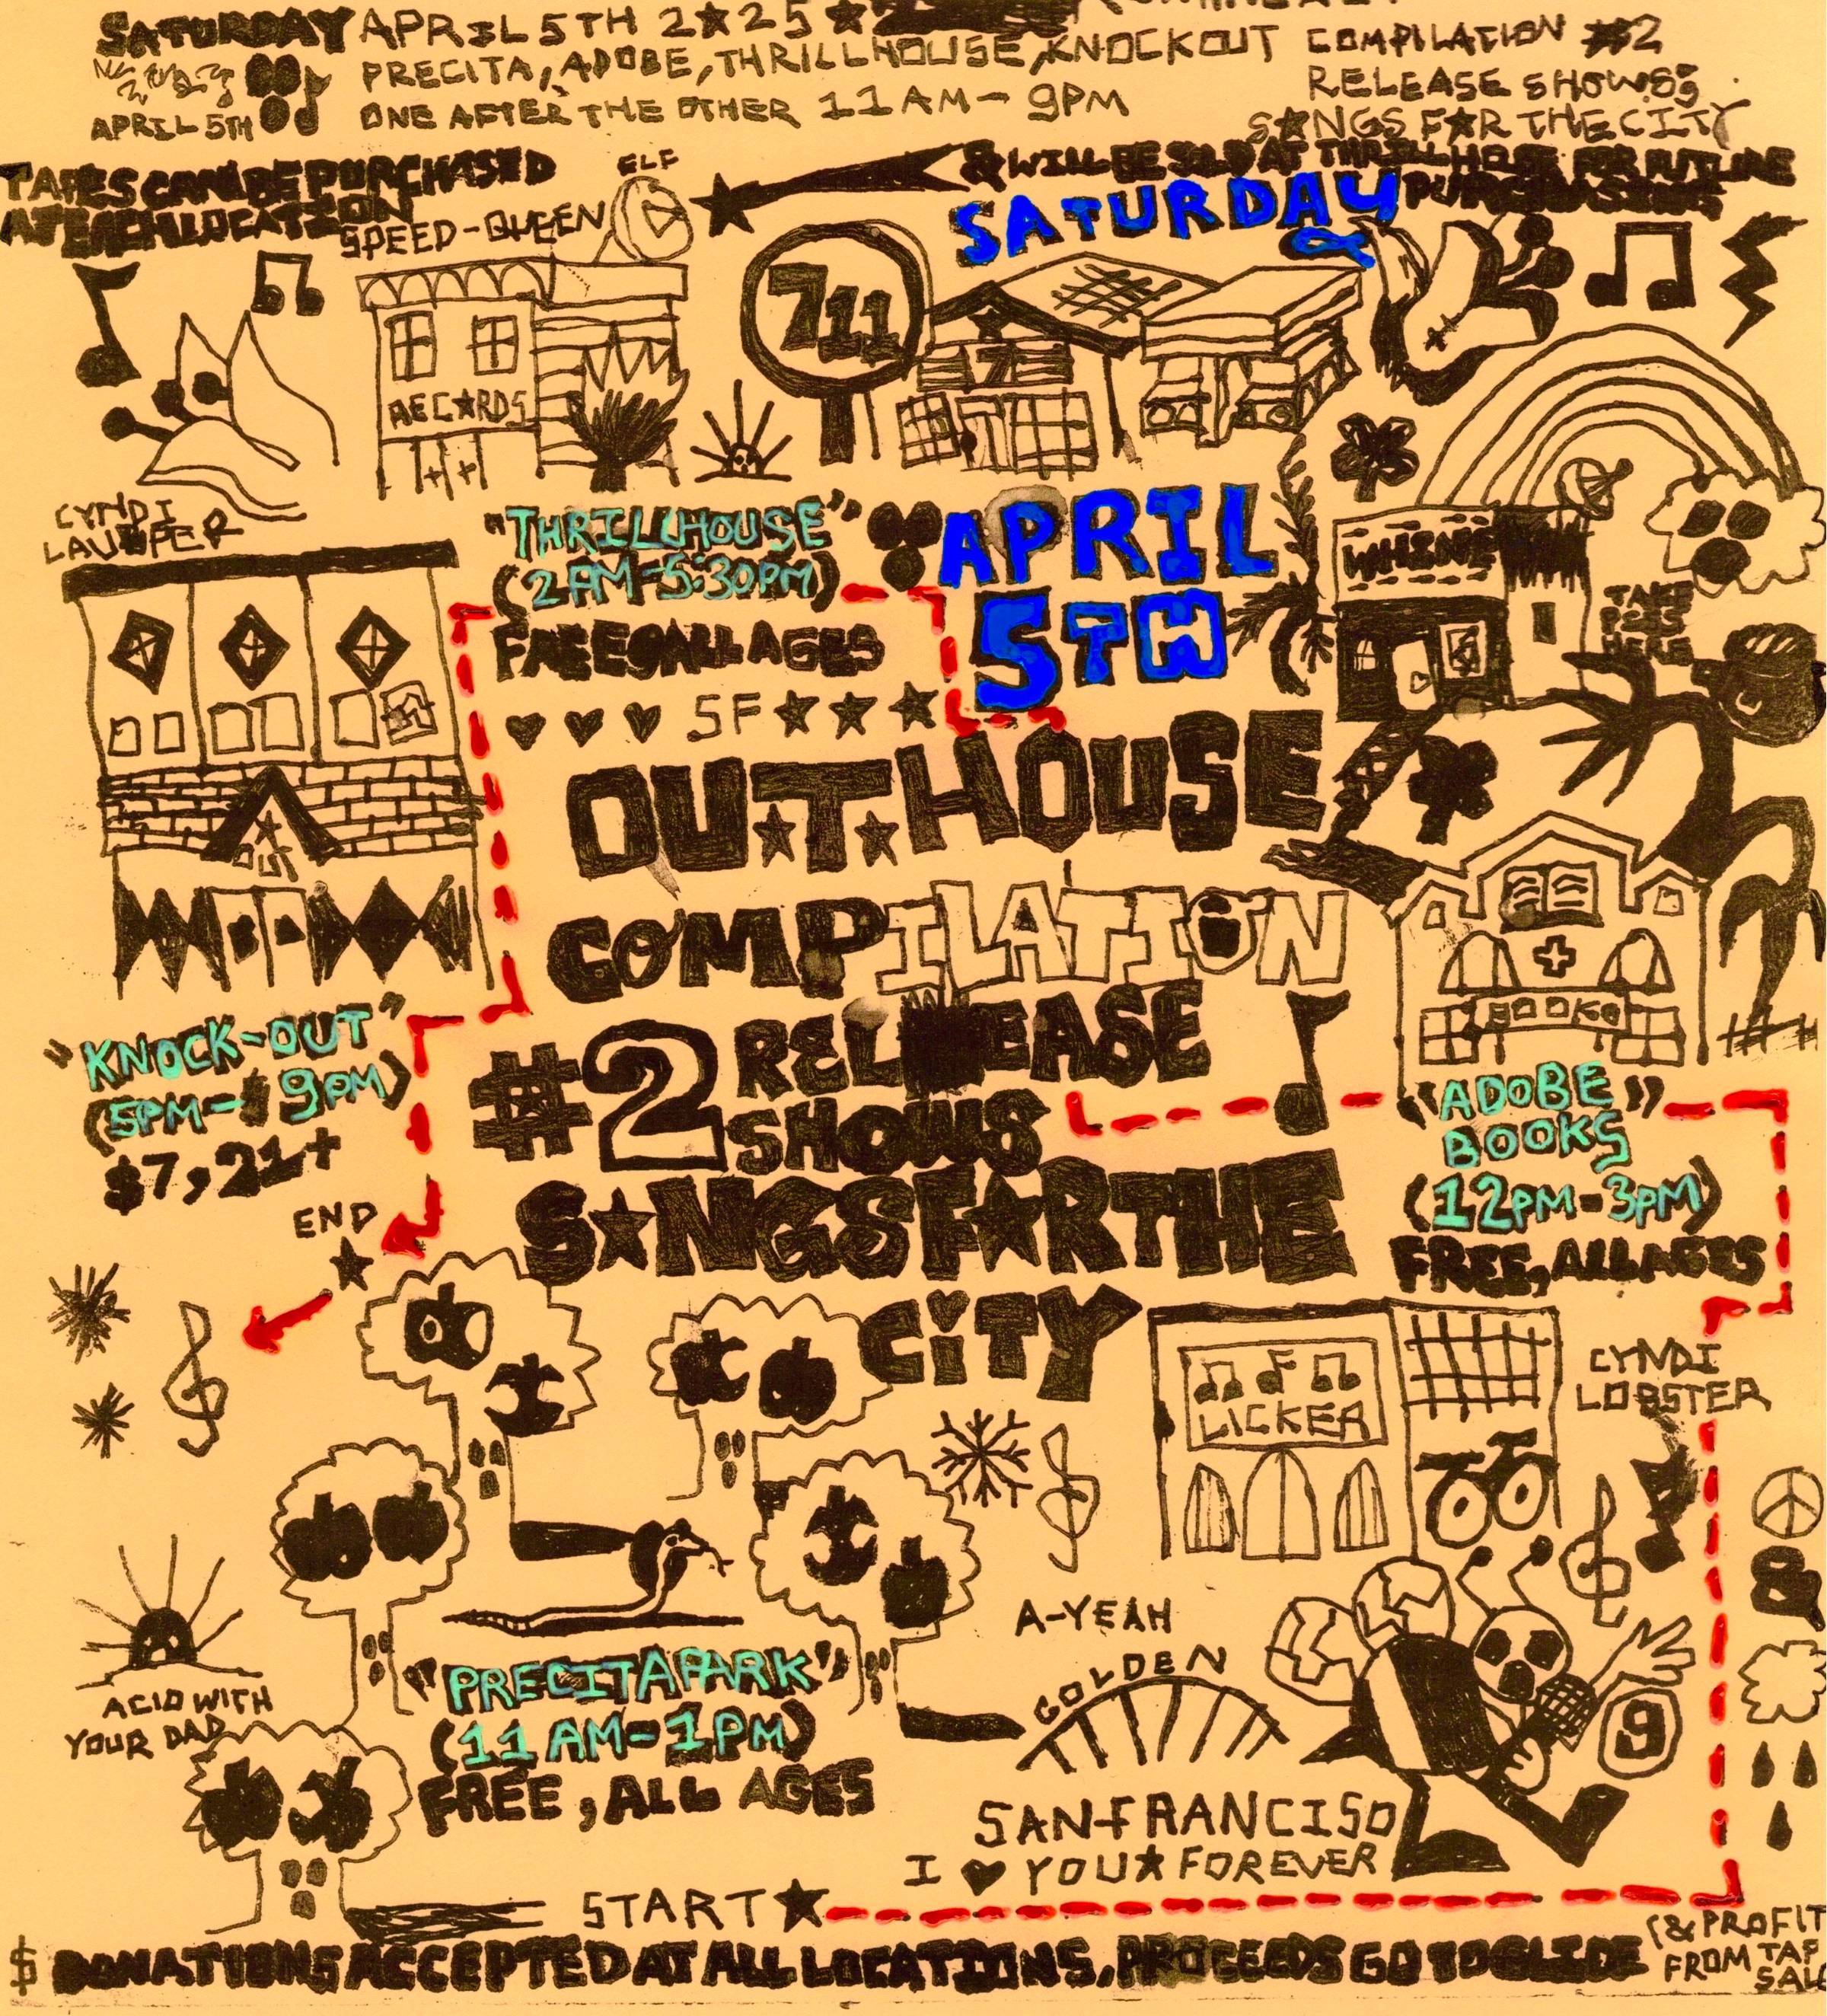 SATURDAY APRIL 5TH 2★25 ★
PRECITA, ADOBE, THRILLHOUSE, KNOCKOUT
APRIL 5TH
ONE AFTER THE OTHER 11AM- 9PM
COMPILATION #2
RELEASE SHOWS
S★NGS F★R THE CITY
TAPES CAN BE PURCHASED
AT EACH LOCATION
& WILL BE SOLD AT THRILLHOUSE FOR FUTURE
PURCHASING
ELF
SPEED-QUEEN
SATURDAY
711
7
REC★RDS
CYNDI
LAUPER
"THRILLHOUSE"
(2AM-5:30PM)
FREE, ALL AGES
APRIL
5TH
WHINE
TAKE
P245
HERE
♥ ♥ ♥ SF ★ ★ ★
OU★T★HOUSE
COMPILATION
#2 RELEASE
SHOWS
S★NGS F★R THE
CiTY
"KNOCK-OUT"
(5PM- 9PM)
$7, 21+
END
BOOKS
"ADOBE"
BOOKS
(12PM-3PM)
FREE, ALL AGES
LICKER
CYNDI
LOBSTER
ACID WITH
YOUR DAD
"PRECITA PARK"
(11AM-1PM)
FREE, ALL AGES
A-YEAH
GOLDEN
9
SAN FRANCISO
I ♥ YOU★FOREVER
START★
$ DONATIONS ACCEPTED AT ALL LOCATIONS, PROCEEDS GO TO GLIDE
(& PROFIT
FROM TAP
SAL